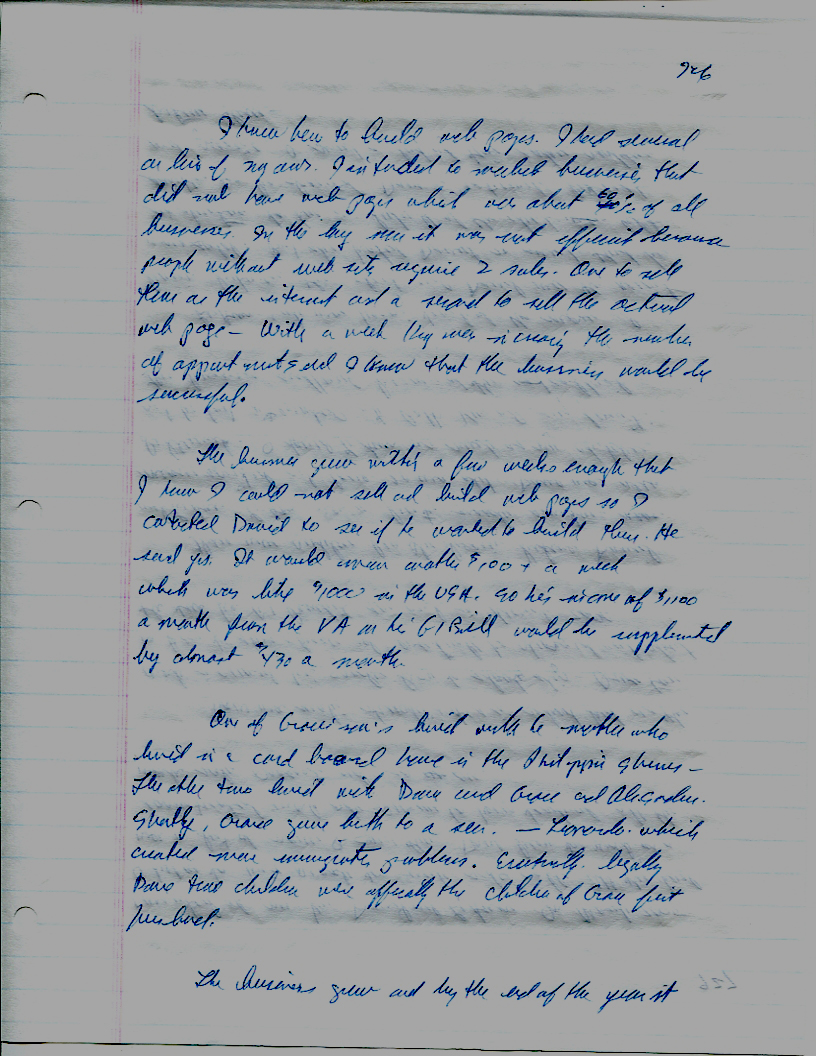 926
I knew how to build web pages. I had several
on line of my own. I intended to market businesses that
did not have web pages which was about 60% of all
businesses. In the long run it was not efficient because
people without web sites require 2 sales. One to sell
them on the internet and a second to sell the actual
web page - With a week they were increasing the number
of appointments and I knew that the business would be
successful.
The business grew within a few weeks enough that
I knew I could not sell and build web pages so I
contacted David to see if he wanted to build them. He
said yes. It would mean another $100 + a week
which was like $1000 in the USA. So his income of $1,100
a month from the VA on his GI Bill would be supplemented
by almost $430 a month.
One of Grace's sons lived with her mother who
lived in a card board home in the Philippine slums -
The other two lived with Dave and Grace and Alexander.
Shortly, Grace gave birth to a son. - Leonardo. which
created more immigration problems. Eventually legally
Dave's two children were officially the children of Grace first
husband.
The business grew and by the end of the year it